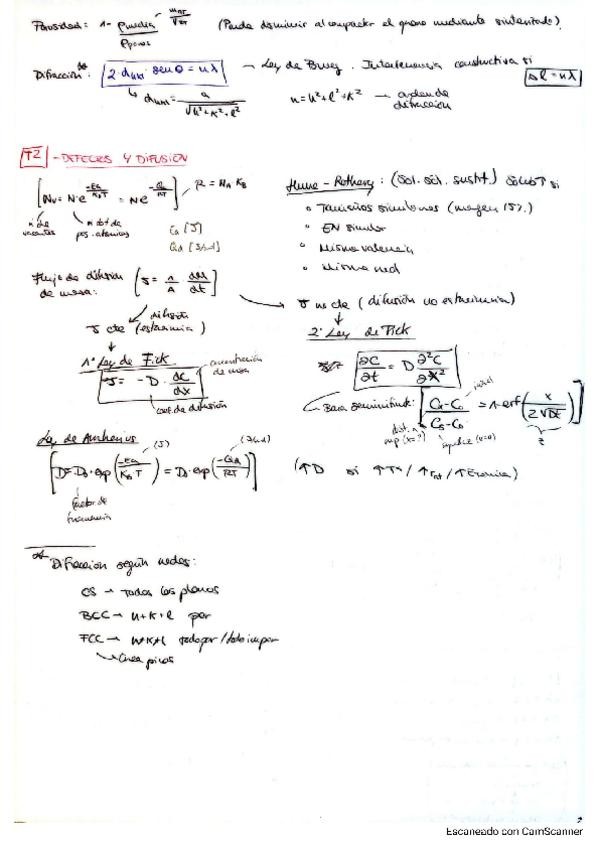 Porosidad: 1 - ρmedia / ρporos (Puede disminuir al compactar el grano mediante sinterizado).
Difracción**: 2·dhkl senθ = nλ → Ley de Bragg. Interferencia constructiva si Δl = nλ
↳ dhkl = a / √(h²+k²+l²) n = h²+l²+k² → orden de difracción
T2 - DEFECTOS Y DIFUSIÓN
[Nv = N·e^(-Ea/KBT) = N e^(-Qa/RT)] R = NA KB
nº de vacantes nº tot de pos. atómicas Ea [J]
Qa [J/mol]
Hume-Rothery: (Sol. sól. sustit.) si
° Tamaños similares (margen 15%)
° EN similar
° Misma valencia
° Misma red
Flujo de difusión de masa: [J = 1/A dM/dt]
J cte (estacionaria)
J no cte (difusión no estacionaria)
1ª Ley de Fick
J = -D · dC/dx concentración de masa
coef. de difusión
2ª Ley de Fick
∂C/∂t = D ∂²C/∂x²
Barra semiinfinita: [Cx-C0 / Cs-C0 = 1-erf(x / 2√Dt)]
z
Ley de Arrhenius (J) (J/mol)
[D = D0·exp(-Ea/KBT) = D0·exp(-Qd/RT)]
factor de frecuencia
(↑D si ↑Tª /
** Difracción según redes:
CS → Todos los planos
BCC → h+k+l par
FCC → h+k+l todo par/todo impar
Crea picos
Escaneado con CamScanner